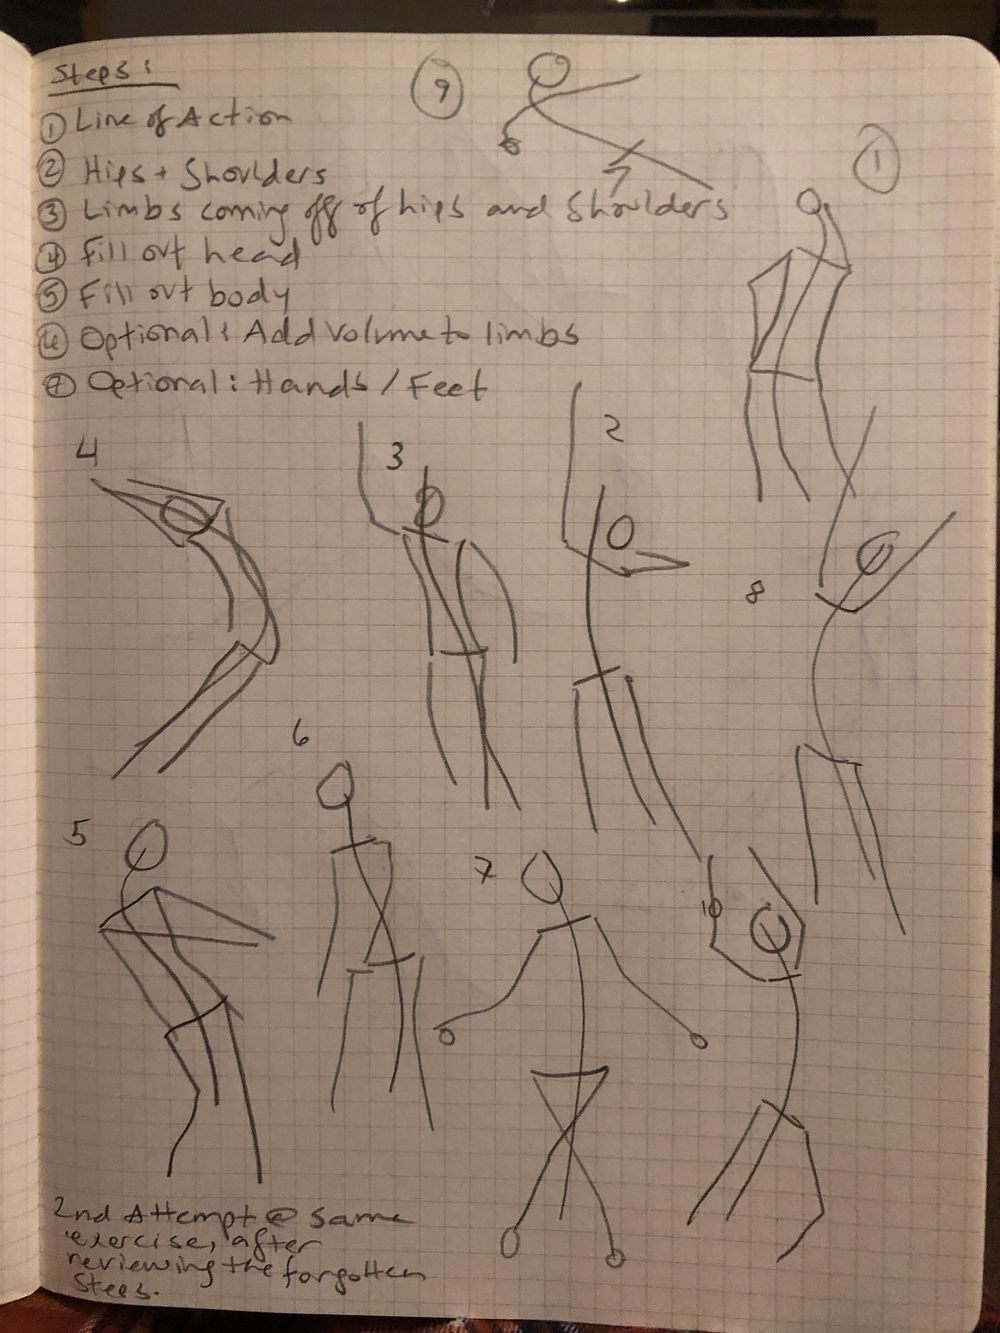 Steps:
① Line of Action
② Hips + Shoulders
③ Limbs coming off of hips and Shoulders
④ Fill out head
⑤ Fill out body
⑥ Optional: Add Volume to limbs
⑦ Optional: Hands / Feet
9
1
2
3
4
8
6
5
7
10
2nd Attempt @ same
exercise, after
reviewing the forgotten
Steps.